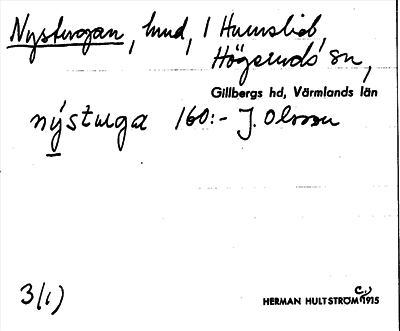 Nysturgan, hmd, 1 Humslid,
Högerud sn,
Gillbergs hd, Värmlands län
nýsturga 160:- J. Olsson
3/1)
HERMAN HULTSTRÖM c.) 1915